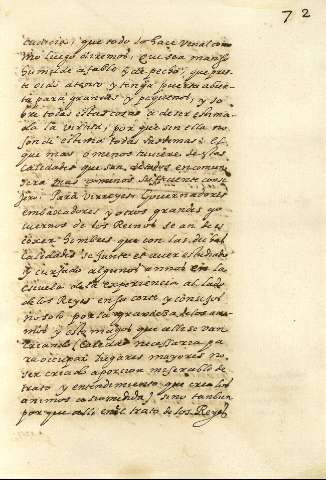 72
cudicia, que todo lo hace venal como
luego diremos, que sea manso
humilde afable y de pecho, que pres-
te oido atento y tenga puerta abier-
ta para grandes y pequeños, y so-
bre todas estas cosas a de ser estima-
da la virtud, por que sin ella no
son de estima todas las demas: el
que mas o menos tuviere de las
calidades que sea,
mas o menos suficiente
Para Virreyes Governadores
embaxadores y otros grandes go-
viernos de los Reinos se an de es-
coxer hombres que con las dichas
calidades se junte el aver estudiado
y cursado algunos annos en la
escuela de la experiencia al lado
de los Reyes en su corte y consejos
no solo por la grandeza de los ani-
mos y que alli se van
creando (calidad necessaria pa-
ra occupar lugares mayores no
ser criado a porcion miserable de
trato y entendimiento que cria los
animos a su medida) sino tambien
por que alli en el trato de los Reyes